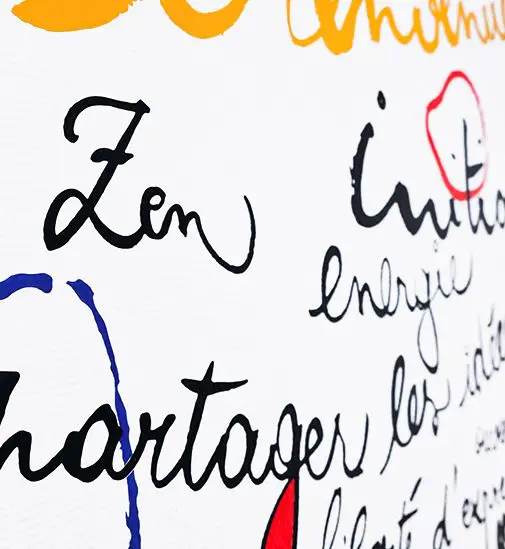 Zen
initia
energie
partager les idée
liberté d'expre